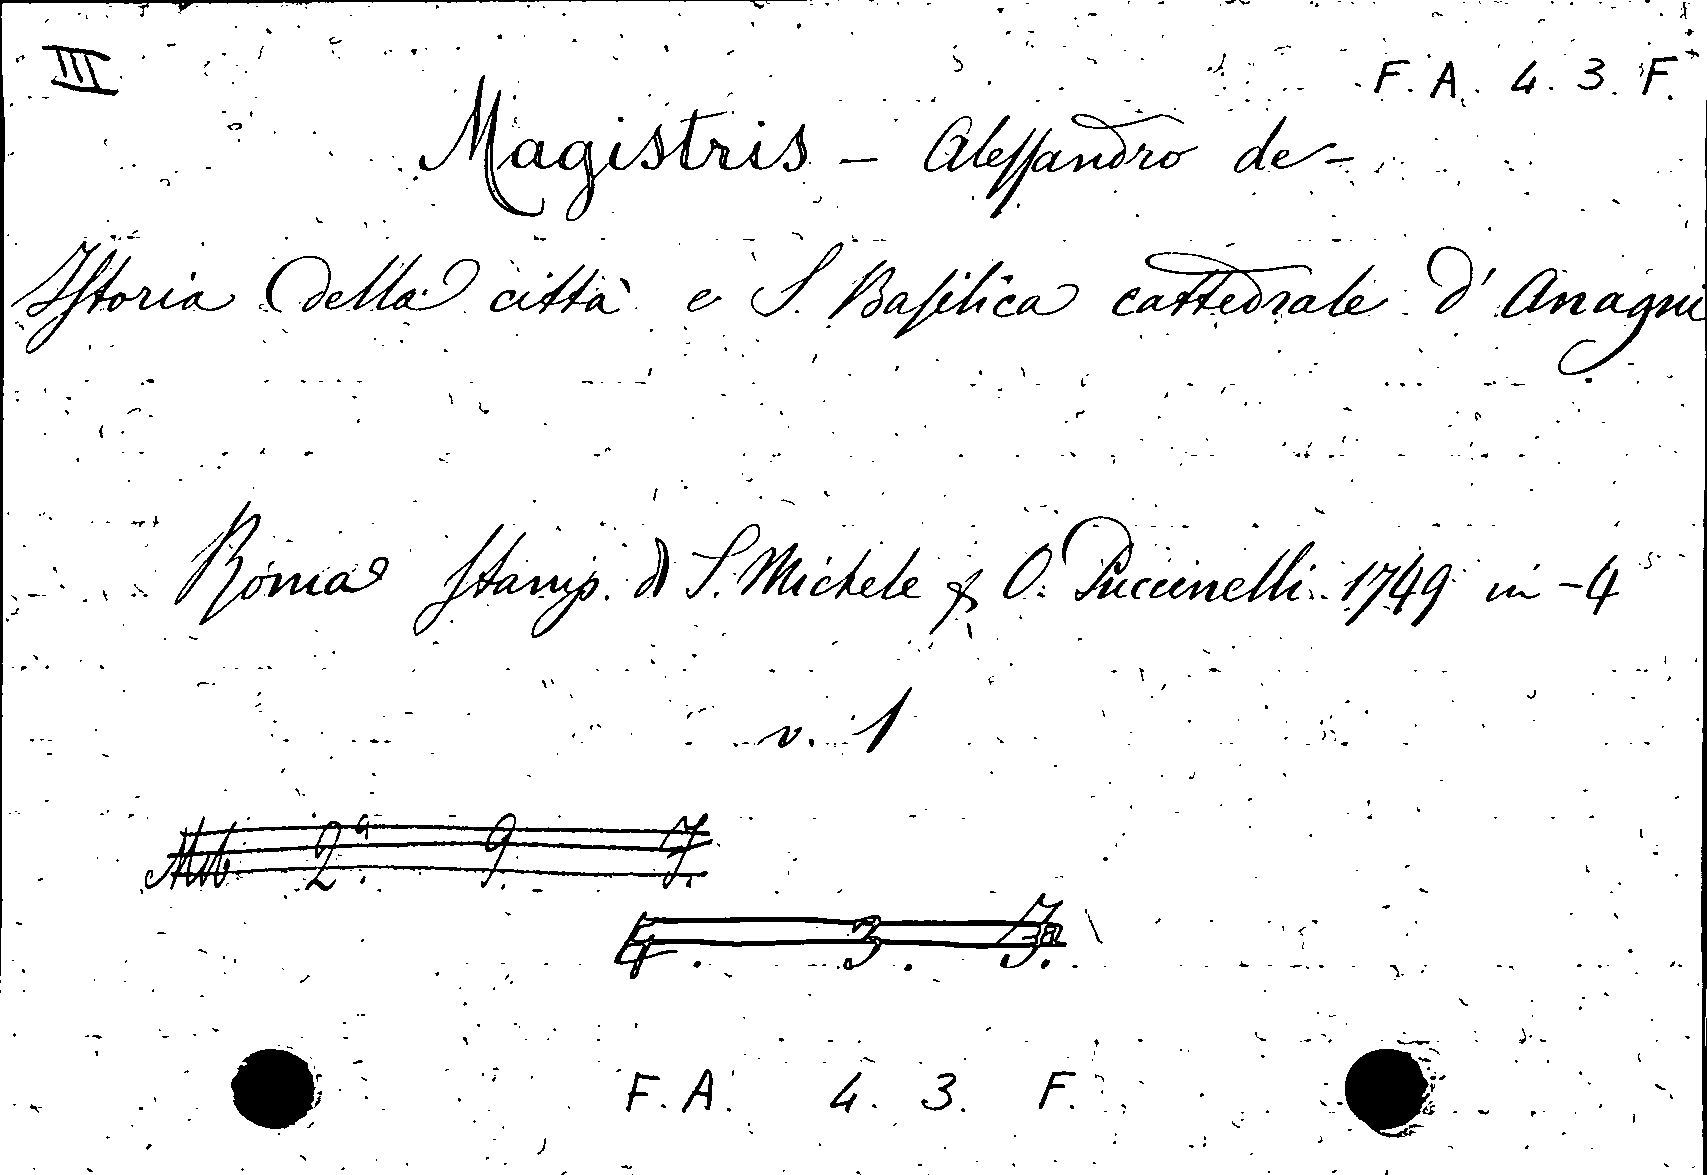 III F. A. 4. 3. F.
Magistris - Alessandro de -
Istoria della città e S. Basilica cattedrale d'Anagni
Roma Stamp. di S. Michele & O. Puccinelli 1749 in-4
v. 1
2ª. 9. 7.
4. 3.
F. A. 4. 3. F.